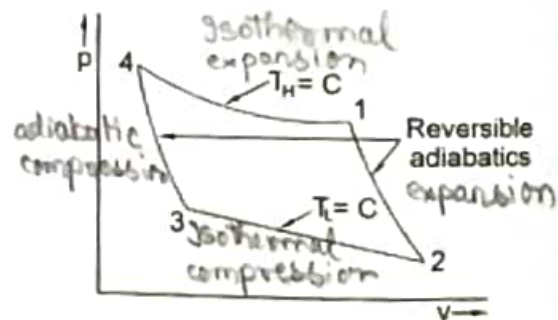 Isothermal
expansion
P
4
T_H = C
1
adiabatic
compression
Reversible
adiabatics
expansion
3
T_L = C
Isothermal
compression
2
V